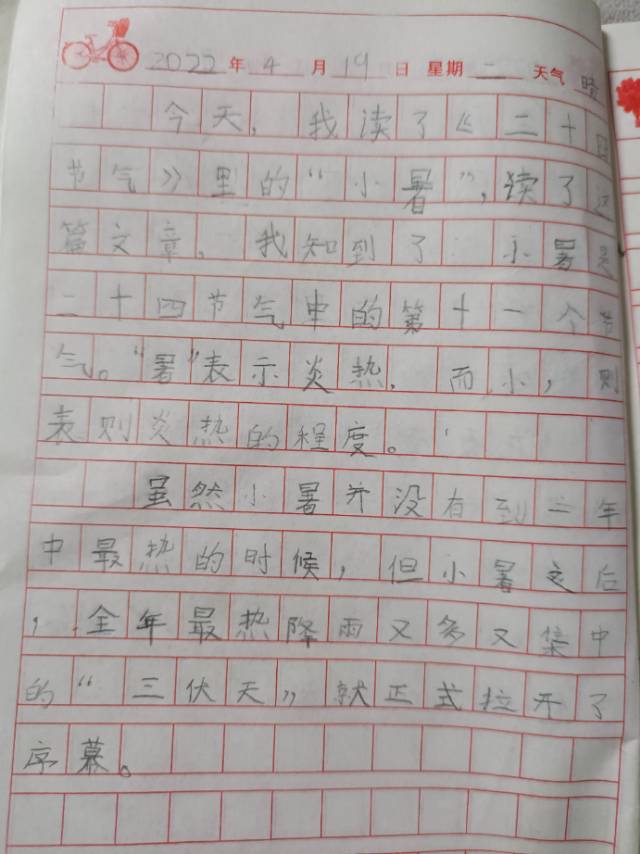 2022年4月19日 星期二 天气 晴
今天，我读了《二十四
节气》里的“小暑”，读了这
篇文章，我知到了 小暑是
二十四节气中的第十一个节
气。“暑”表示炎热，而小，则
表则炎热的程度。
虽然小暑并没有到一年
中最热的时候，但小暑之后
，全年最热降雨又多又集中
的“三伏天”就正式拉开了
序幕。